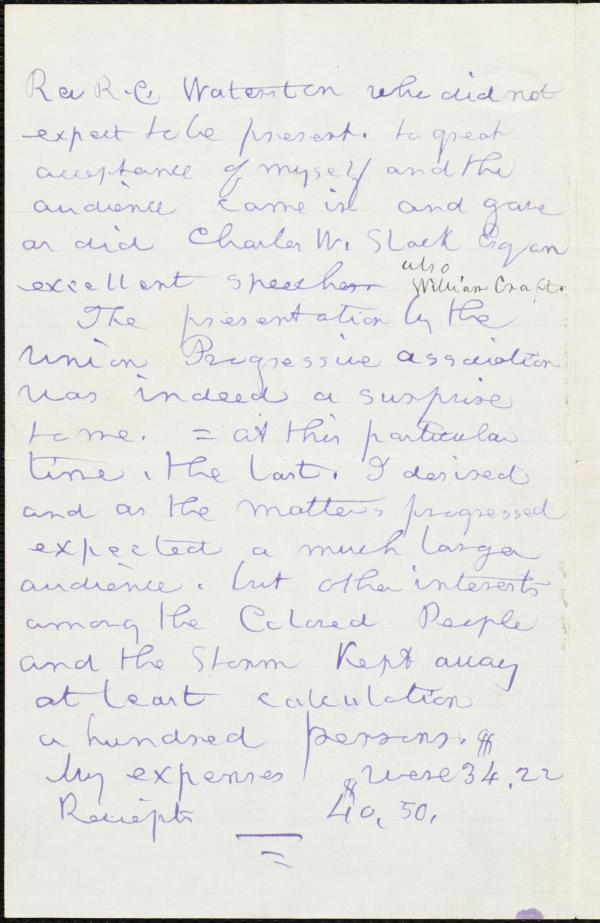 Rev R. C. Waterston who did not
expect to be present. to great
acceptance of myself and the
audience came in and gave
as did Charles W. Slack Esq an
excellent speeches also William Craft.
The presentation by the
Union Progressive association
was indeed a surprise
to me. = at this particular
time, the last. I desired
and as the matters progressed
expected a much larger
audience. but other interests
among the Colored People
and the storm Kept away
at least calculation
a hundred persons.
My expenses were $34.22
Receipts $40.50.